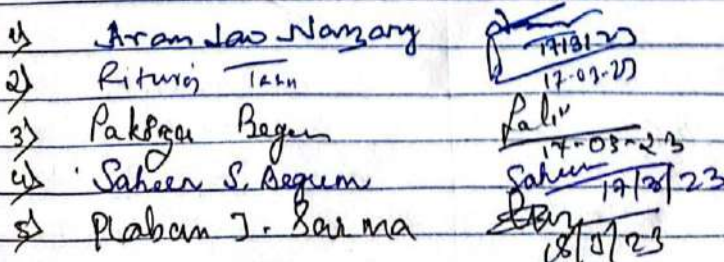 1) Aram Jao Narzary 17/3/23
2) Rituraj 17-03-23
3) Begum 17-03-23
4) Saheen S. Begum Saheen 17/3/23
5) Plaban J. Sarma 18/3/23